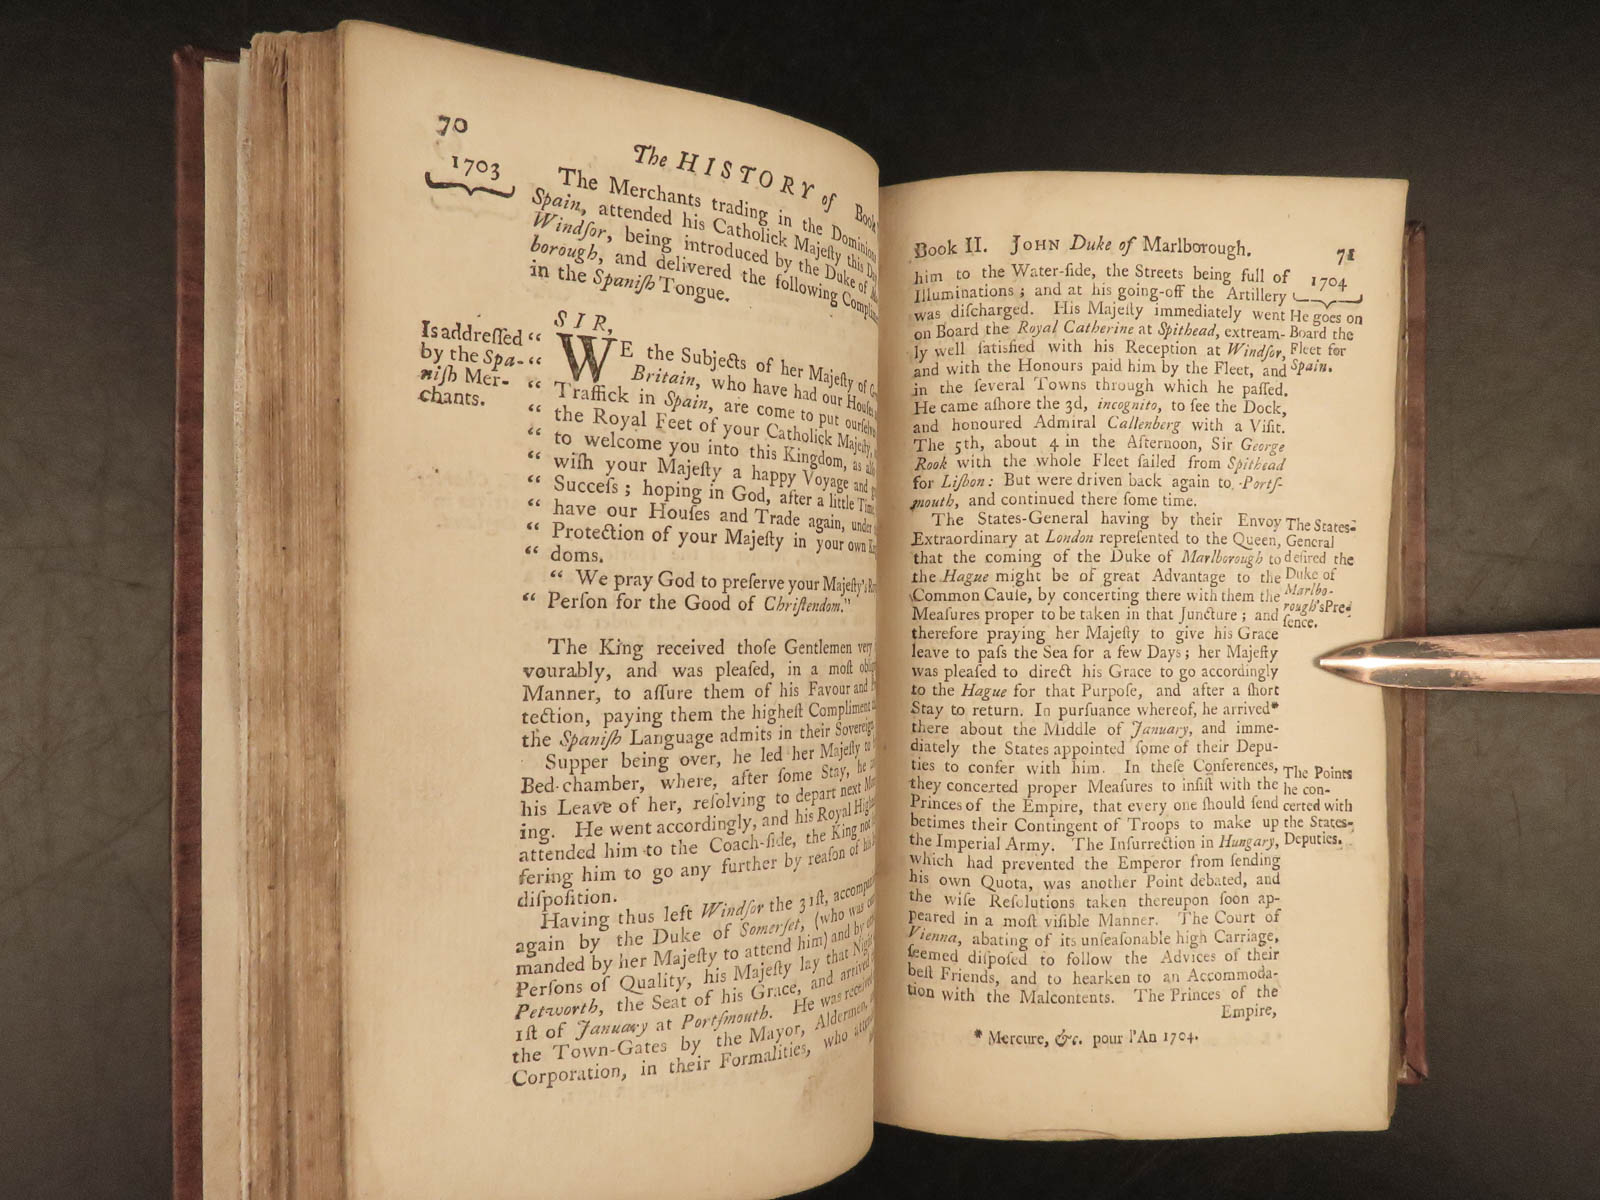 70
1703
The HISTORY of Book
The Merchants trading in the Dominions
Spain, attended his Catholick Majeſty this
Windſor, being introduced by the Duke of
borough, and delivered the following
in the Spaniſh Tongue.
Is addreſſed
by the Spa-
niſh Mer-
chants.
SIR,
“ WE the Subjects of her Majeſty of
“ Britain, who have had our Houſes
“ Traffick in Spain, are come to put
“ the Royal Feet of your Catholick Majeſty,
“ to welcome you into this Kingdom, as
“ wiſh your Majeſty a happy Voyage and
“ Succeſs; hoping in God, after a little Time,
“ have our Houſes and Trade again, under
“ Protection of your Majeſty in your own
“ doms.
“ We pray God to preſerve your Majeſty's
“ Perſon for the Good of Chriſtendom.”
The King received thoſe Gentlemen very
vourably, and was pleaſed, in a moſt
Manner, to aſſure them of his Favour and
tection, paying them the higheſt Compliment
the Spaniſh Language admits in their Sovereign.
Supper being over, he led her Majeſty to
Bed-chamber, where, after ſome Stay, he
his Leave of her, reſolving to depart next
ing. He went accordingly, and his Royal
attended him to the Coach-ſide, the King not
fering him to go any further by reaſon of his
diſpoſition.
Having thus left Windſor the 31ſt,
again by the Duke of Somerſet, (who was
manded by her Majeſty to attend him) and by
Perſons of Quality, his Majeſty lay that Night
Petworth, the Seat of his Grace, and arrived
1ſt of January at Portſmouth. He was received
the Town-Gates by the Mayor, Aldermen,
Corporation, in their Formalities, who
Book II. JOHN Duke of Marlborough. 71
1704
him to the Water-ſide, the Streets being full of
Illuminations; and at his going-off the Artillery
was diſcharged. His Majeſty immediately went
on Board the Royal Catherine at Spithead, extream-
ly well ſatisfied with his Reception at Windſor,
and with the Honours paid him by the Fleet, and
in the ſeveral Towns through which he paſſed.
He came aſhore the 3d, incognito, to ſee the Dock,
and honoured Admiral Callenberg with a Viſit.
The 5th, about 4 in the Afternoon, Sir George
Rook with the whole Fleet ſailed from Spithead
for Liſbon: But were driven back again to Portſ-
mouth, and continued there ſome time.
He goes on
Board the
Fleet for
Spain.
The States-General having by their Envoy
Extraordinary at London repreſented to the Queen,
that the coming of the Duke of Marlborough to
the Hague might be of great Advantage to the
Common Cauſe, by concerting there with them the
Meaſures proper to be taken in that Juncture; and
therefore praying her Majeſty to give his Grace
leave to paſs the Sea for a few Days; her Majeſty
was pleaſed to direct his Grace to go accordingly
to the Hague for that Purpoſe, and after a ſhort
Stay to return. In purſuance whereof, he arrived*
there about the Middle of January, and imme-
diately the States appointed ſome of their Depu-
ties to confer with him. In theſe Conferences,
they concerted proper Meaſures to inſiſt with the
Princes of the Empire, that every one ſhould ſend
betimes their Contingent of Troops to make up
the Imperial Army. The Inſurrection in Hungary,
which had prevented the Emperor from ſending
his own Quota, was another Point debated, and
the wiſe Reſolutions taken thereupon ſoon ap-
peared in a moſt viſible Manner. The Court of
Vienna, abating of its unſeaſonable high Carriage,
ſeemed diſpoſed to follow the Advices of their
beſt Friends, and to hearken to an Accommoda-
tion with the Malcontents. The Princes of the
Empire,
The States-
General
deſired the
Duke of
Marlbo-
rough's Pre-
ſence.
The Points
he con-
certed with
the States-
Deputies.
* Mercure, &c. pour l'An 1704.